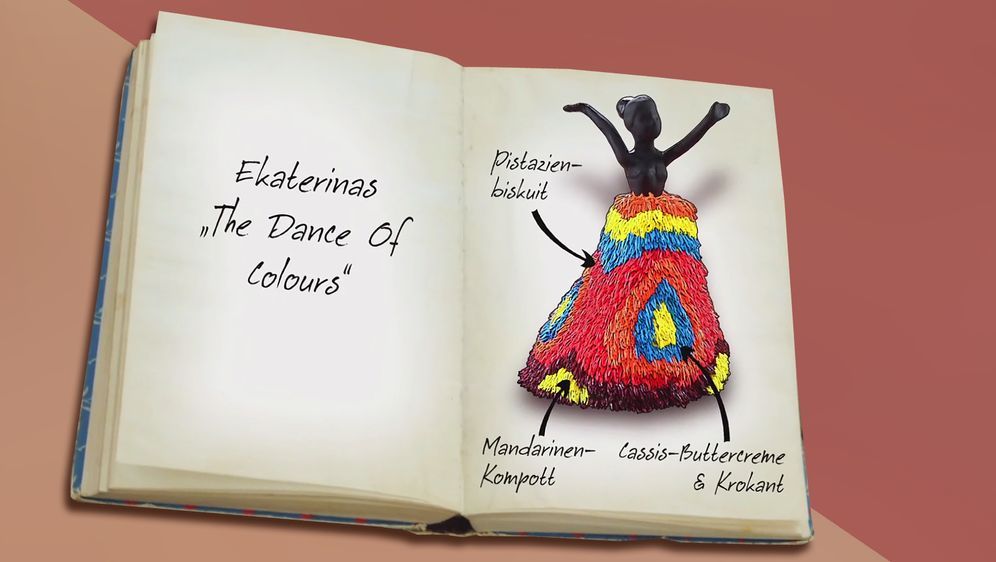 Ekaterinas
„The Dance Of
Colours“
Pistazien-
biskuit
Mandarinen-
Kompott
Cassis-Buttercreme
& Krokant